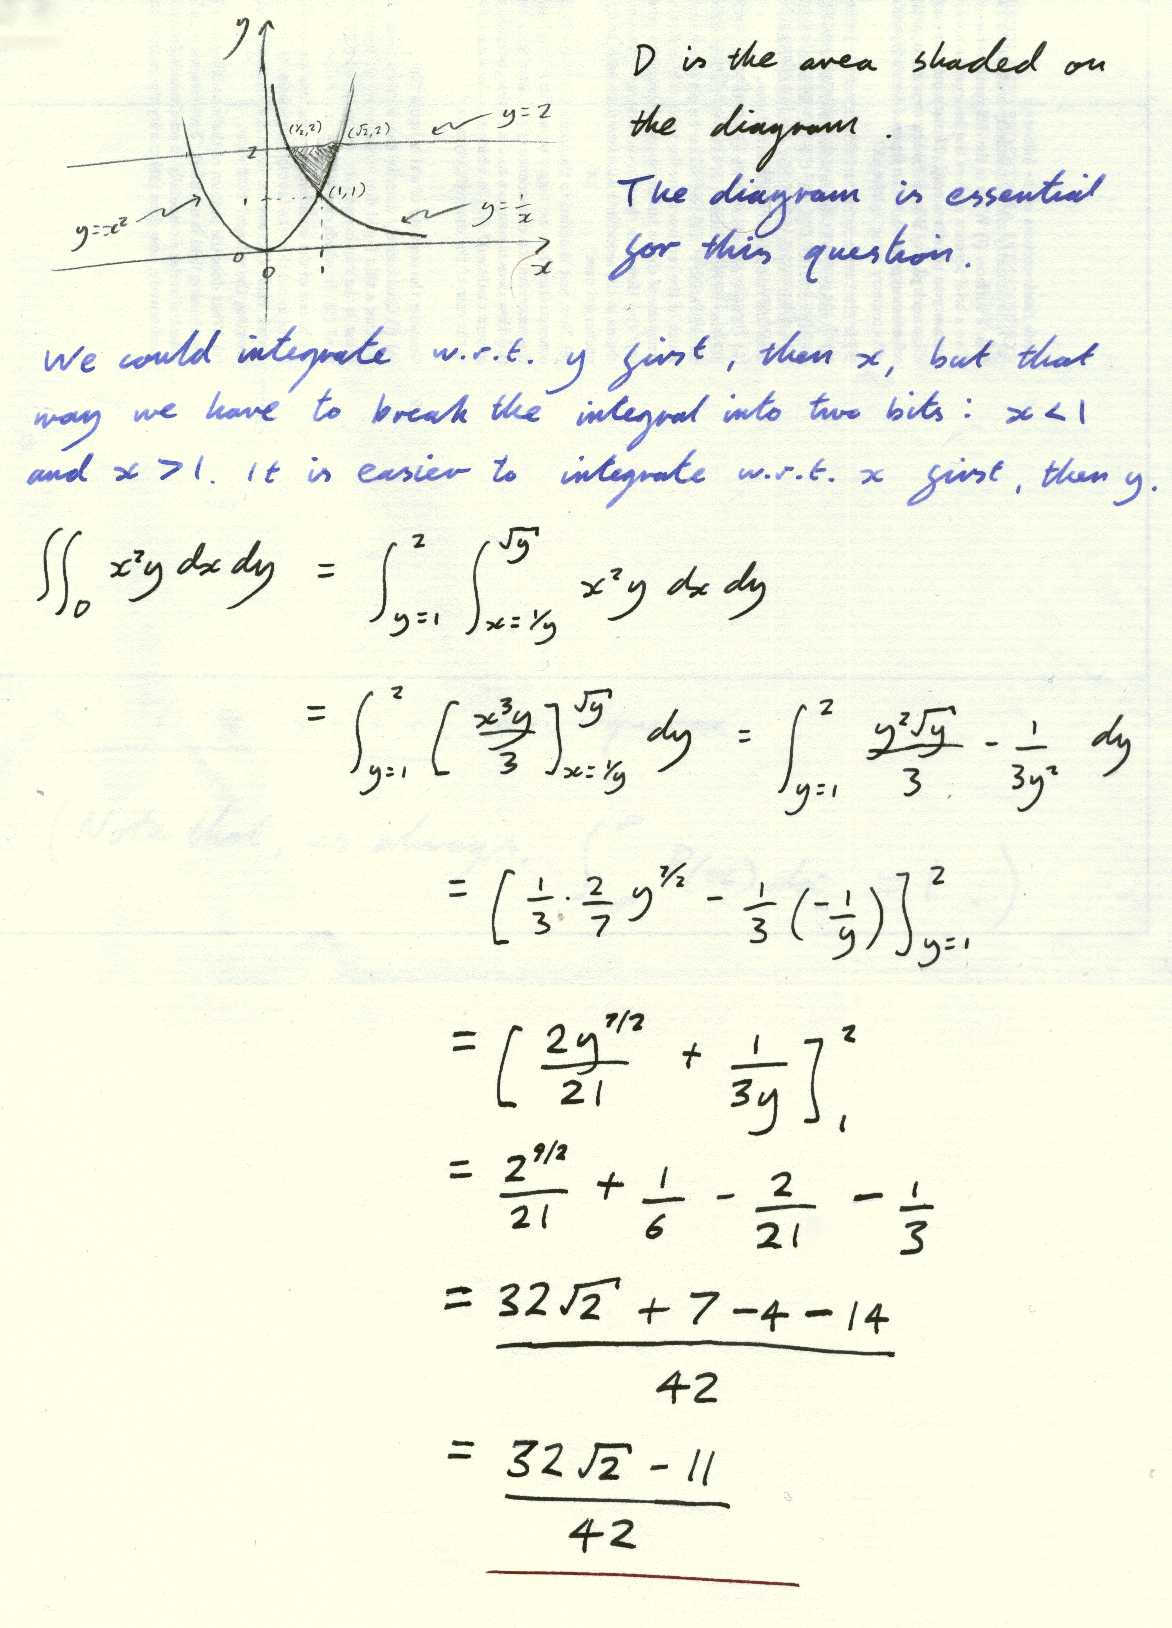 y
(½,2) (√2,2) y=2
2
(1,1)
1
y=x² y=1/x
0
0 1 x
D is the area shaded on
the diagram.
The diagram is essential
for this question.
We could integrate w.r.t. y first, then x, but that
way we have to break the integral into two bits: x<1
and x>1. It is easier to integrate w.r.t. x first, then y.
∬_D x²y dx dy = ∫_{y=1}^{2} ∫_{x=1/y}^{√y} x²y dx dy
= ∫_{y=1}^{2} [x³y/3]_{x=1/y}^{√y} dy = ∫_{y=1}^{2} y²√y/3 - 1/3y² dy
= [1/3 · 2/7 y^{7/2} - 1/3 (-1/y)]_{y=1}^{2}
= [2y^{7/2}/21 + 1/3y]_1^2
= 2^{9/2}/21 + 1/6 - 2/21 - 1/3
= 32√2 + 7 - 4 - 14 / 42
= 32√2 - 11 / 42